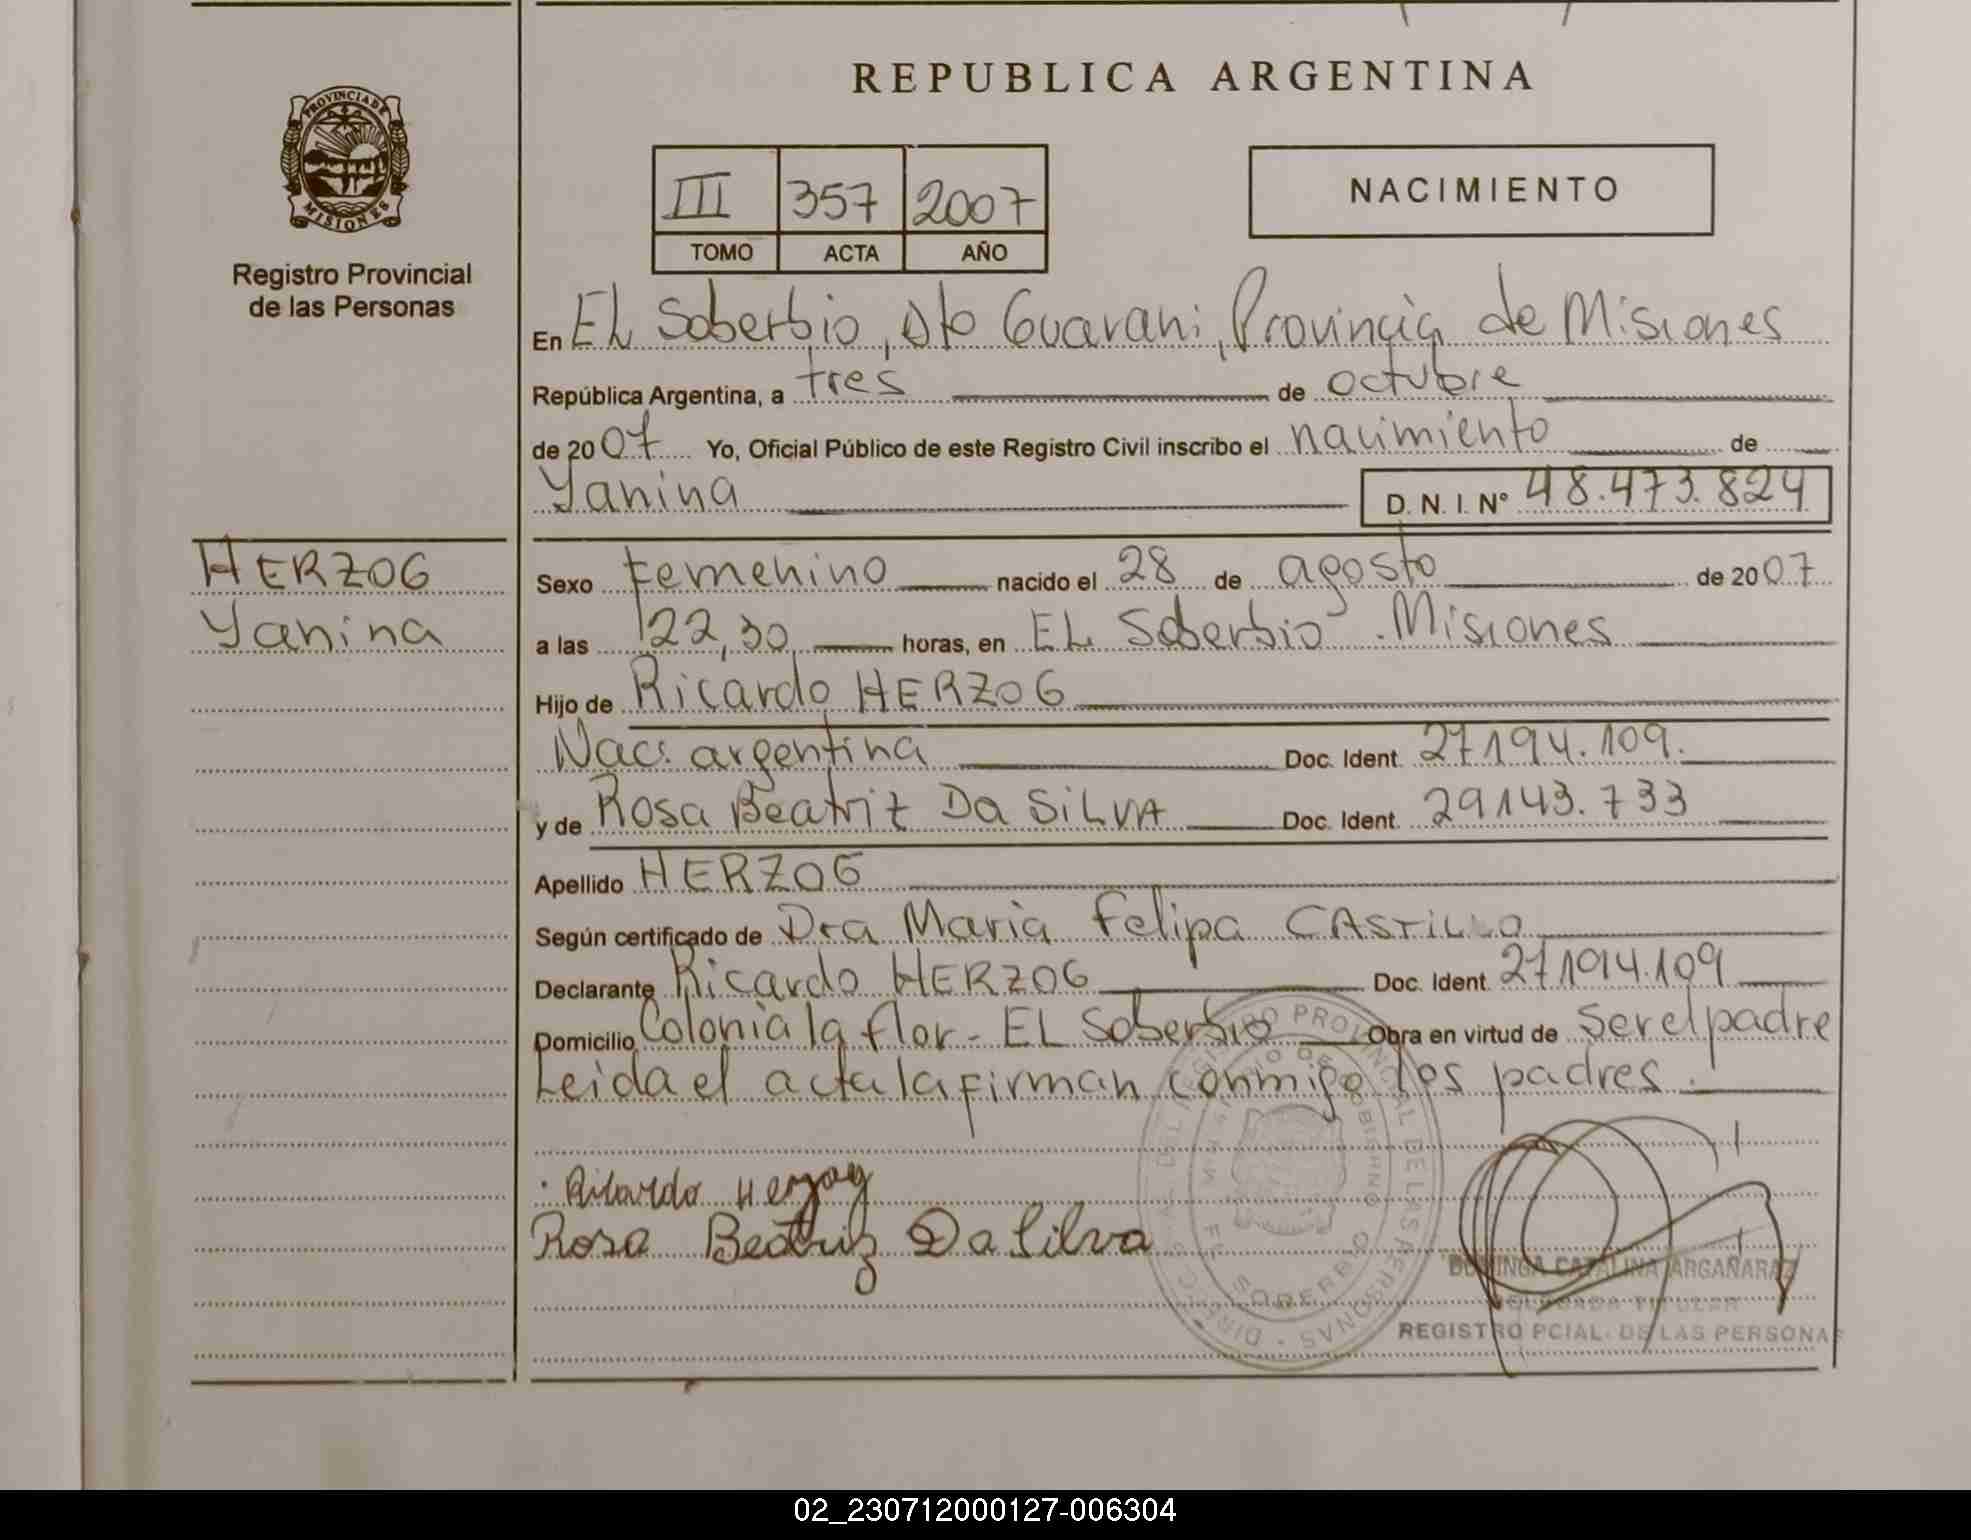 REPUBLICA ARGENTINA
PROVINCIA DE
MISIONES
Registro Provincial
de las Personas
III 357 2007
TOMO ACTA AÑO
NACIMIENTO
En EL Soberbio, Dto Guarani, Provincia de Misiones
República Argentina, a tres de octubre
de 2007 Yo, Oficial Público de este Registro Civil inscribo el nacimiento de
Yanina D. N. I. Nº 48.473.824
HERZOG
Yanina
Sexo Femenino nacido el 28 de agosto de 2007
a las 22,30 horas, en EL Soberbio. Misiones
Hijo de Ricardo HERZOG
Nac: argentina Doc. Ident. 27194.109.
y de Rosa Beatriz Da SiLVA Doc. Ident. 29143.733
Apellido HERZOG
Según certificado de Dra Maria Felipa CASTILLO
Declarante Ricardo HERZOG Doc. Ident. 27194.109
Domicilio Colonia la flor - EL Soberbio Obra en virtud de ser el padre
Leida el acta la firman conmigo los padres.
Ricardo Herzog
Rosa Beatriz Da Silva
DIREC. GRAL. DEL REGISTRO PROVINCIAL DE LAS PERSONAS
MINISTERIO DE GOBIERNO
EL SOBERBIO
DOMINGA CATALINA ARGAÑARAZ
DELEGADA TITULAR
REGISTRO PCIAL. DE LAS PERSONAS
02_230712000127-006304